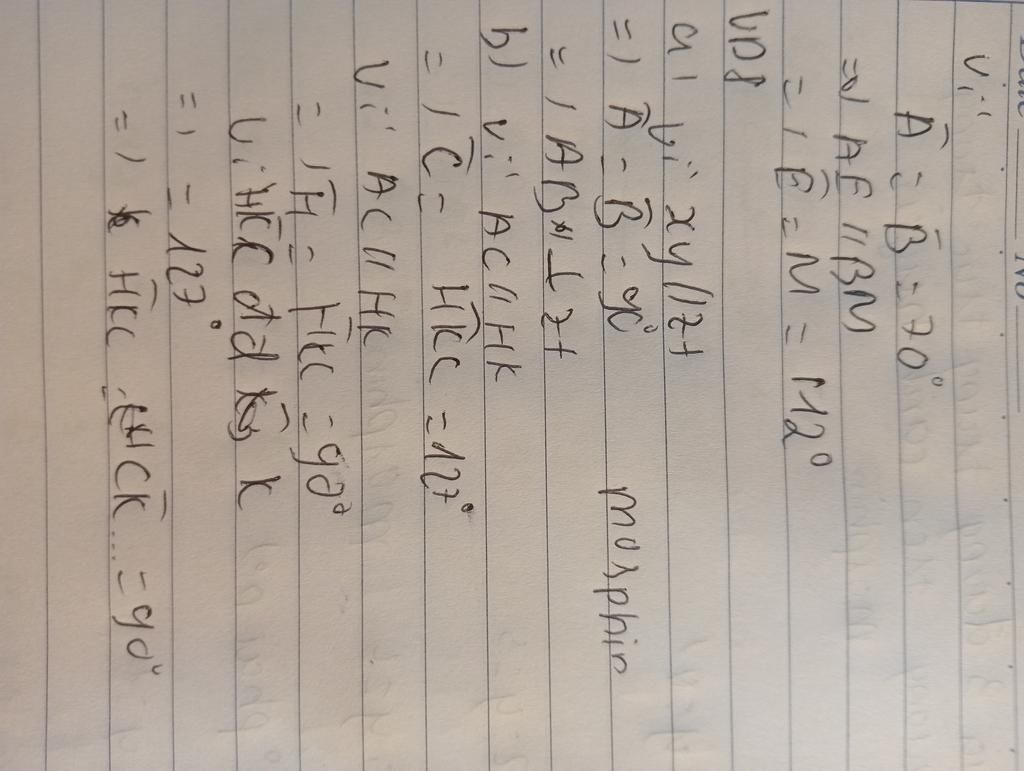 Date No
Vì:
Â = B̂ = 70°
=> AE // BM
=> Ê = M = 112°
VD8
a) Vì xy // zt
=> Â = B̂ = 90°
morphin
=> AB ⊥ zt
b) Vì AC // HK
=> Ĉ = HKC = 127°
Vì AC // HK
=> Ĥ = HKC = 90°
Vì HKC đđ K
=> = 127°
=> HKC = HCK .... = 90°